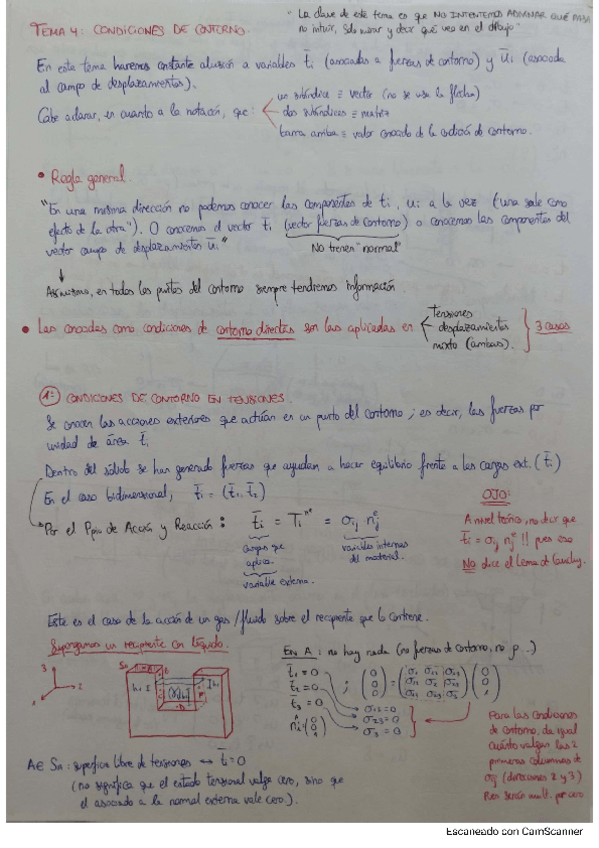 TEMA 4: CONDICIONES DE CONTORNO.
"La clave de este tema es que NO INTENTEMOS ADIVINAR QUÉ PASA
no intuir, sólo mirar y decir qué veo en el dibujo"
En este tema haremos constante alusión a variables t̄i (asociadas a fuerzas de contorno) y ūi (asociada
al campo de desplazamientos).
Cabe aclarar, en cuanto a la notación, que:
un subíndice ≡ vector (no se usa la flecha)
dos subíndices ≡ matriz
barra arriba ≡ valor conocido de la condición de contorno.
• Regla general.
"En una misma dirección no podemos conocer las componentes de ti, ui a la vez (una sale como
efecto de la otra"). O conocemos el vector t̄i (vector fuerzas de contorno) o conocemos las componentes del
vector campo de desplazamientos ūi"
No tienen "normal"
Asimismo, en todos los puntos del contorno siempre tendremos información.
• Las conocidas como condiciones de contorno directas son las aplicadas en
tensiones
desplazamientos
mixto (ambas).
3 casos
1º CONDICIONES DE CONTORNO EN TENSIONES.
Se conocen las acciones exteriores que actúan en un punto del contorno; es decir, las fuerzas por
unidad de área t̄i
Dentro del sólido se han generado fuerzas que ayudan a hacer equilibrio frente a las cargas ext. (t̄i)
En el caso bidimensional, t̄i = (t̄1, t̄2)
Por el Ppio de Acción y Reacción: t̄i = Ti^ne = σij nj^e
cargas que
aplico.
variable externa.
variables internas
del material.
OJO:
A nivel teórico, no decir que
t̄i = σij nj^e !! pues eso
No dice el Lema de Cauchy.
Este es el caso de la acción de un gas/fluido sobre el recipiente que lo contiene.
Supongamos un recipiente con líquido.
EN A: no hay nada (no fuerzas de contorno, no p...)
t̄1 = 0
t̄2 = 0
t̄3 = 0
σ13 = 0
σ23 = 0
σ3 = 0
A ∈ Sn: superficie libre de tensiones ↔ t̄ = 0
(no significa que el estado tensional valga cero, sino que
el asociado a la normal externa vale cero).
Para las condiciones
de contorno, da igual
cuánto valgan las 2
primeras columnas de
σij (direcciones 2 y 3)
Pues serán mult. por cero.
Escaneado con CamScanner